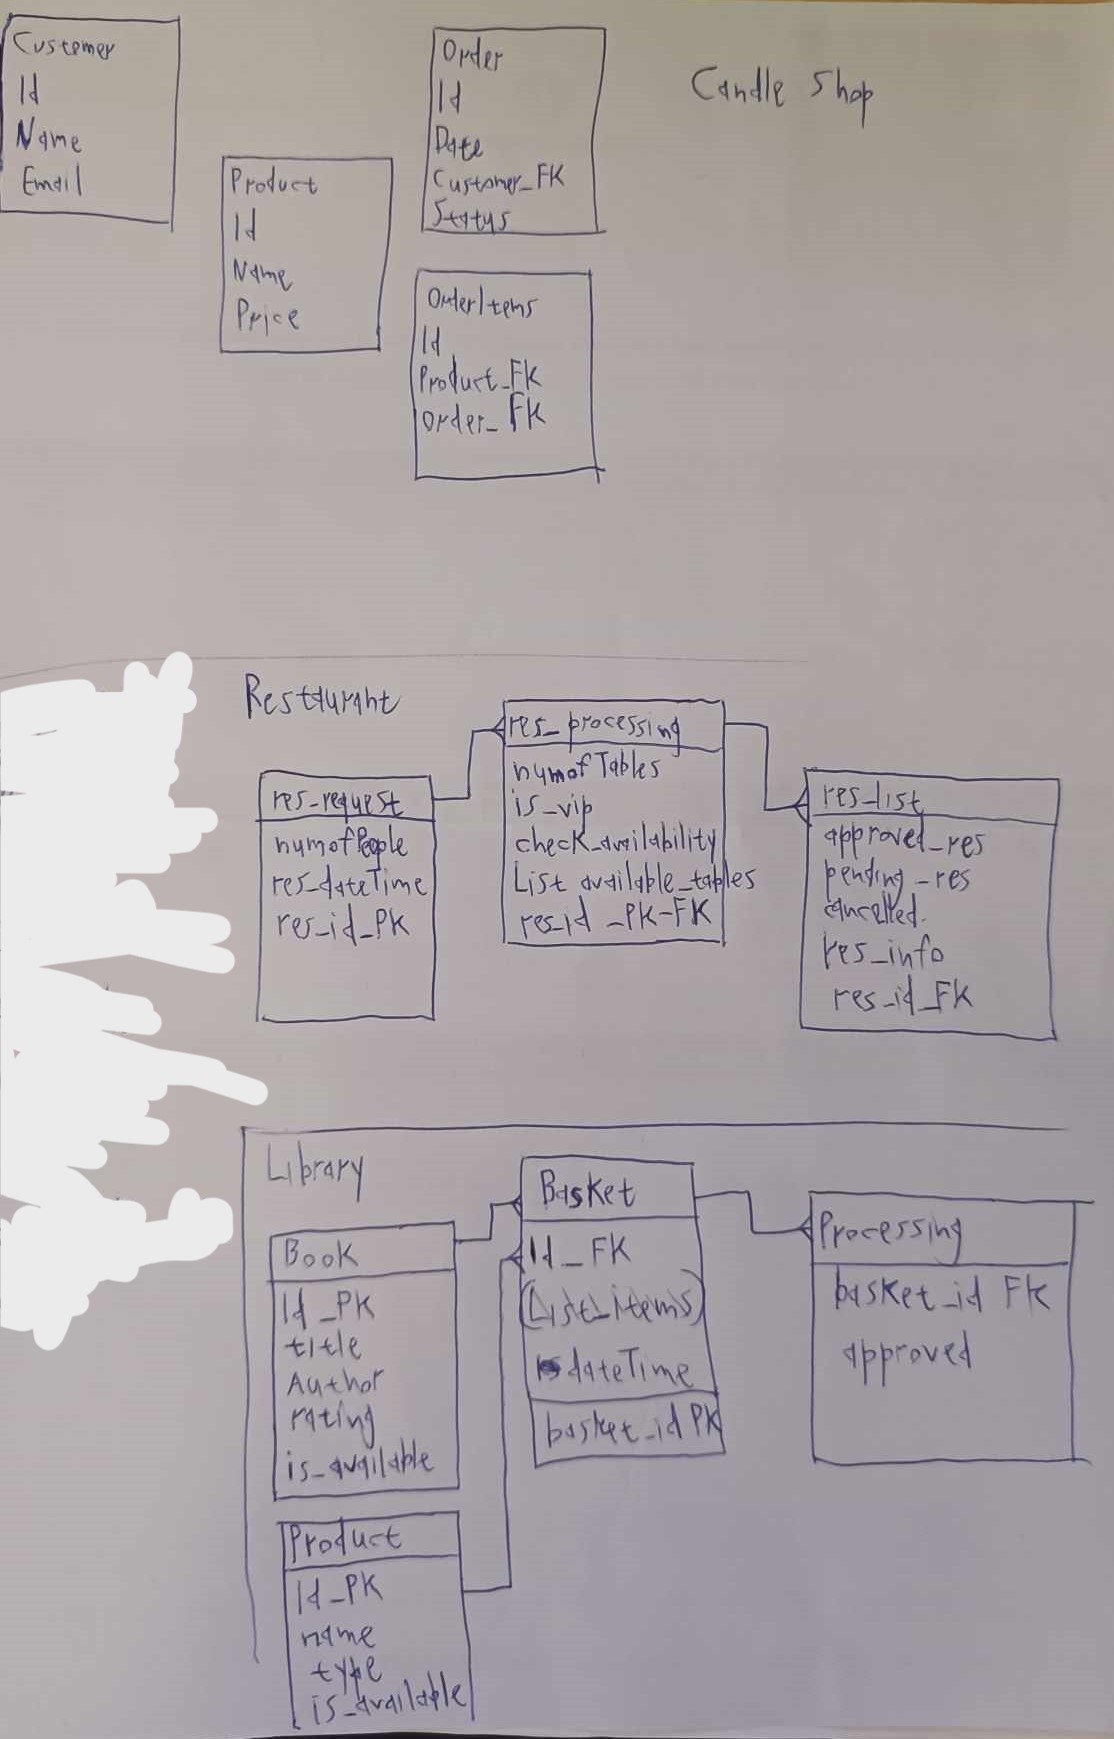 Customer
Id
Name
Email
Product
Id
Name
Price
Order
Id
Date
Customer_FK
Status
OrderItems
Id
Product_FK
Order_FK
Candle Shop
Restaurant
res_request
numofPeople
res_dateTime
res_id_PK
res_processing
numofTables
is_vip
check_availability
List available_tables
res_id_PK-FK
res_list
approved_res
pending_res
cancelled.
res_info
res_id_FK
Library
Book
Id_PK
title
Author
rating
is_available
Product
Id_PK
name
type
is_available
Basket
Id_FK
(List_items)
dateTime
basket_id PK
Processing
basket_id FK
approved